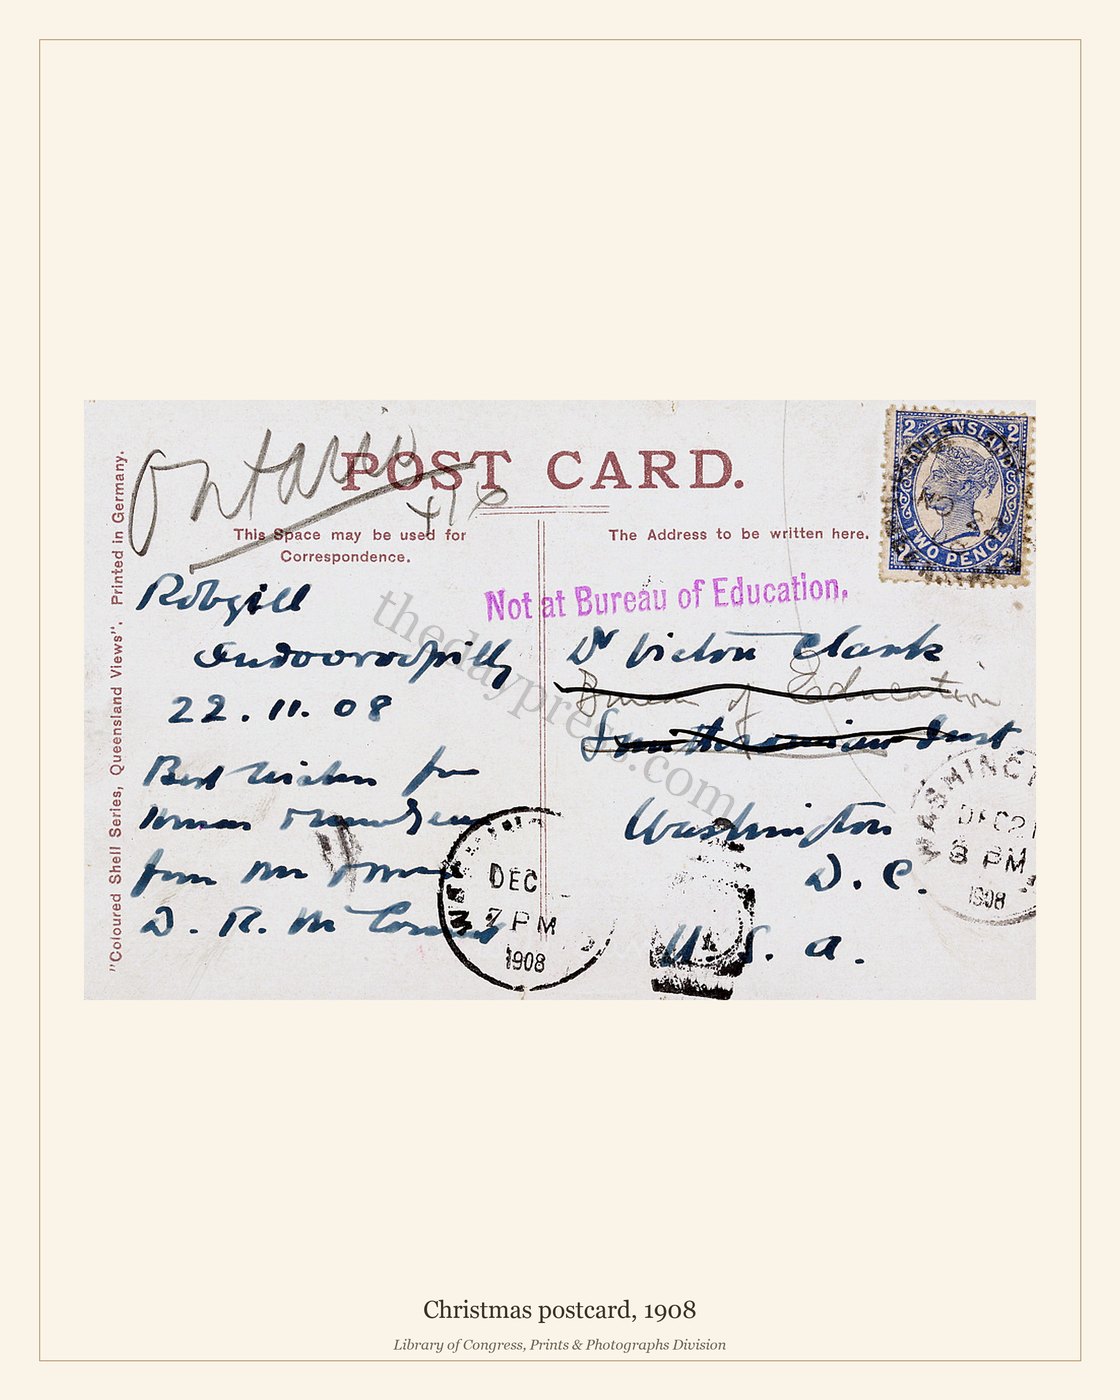 Ontario
416
POST CARD.
This Space may be used for
Correspondence.
The Address to be written here.
"Coloured Shell Series, Queensland Views". Printed in Germany.
2 QUEENSLAND 2
TWO PENCE
2 2
Not at Bureau of Education.
Robgill
Indooroopilly
22.11.08
Best Wishes for
Xmas
from Mr
D. R. Mc
Dr Victor Clark
Bureau of Education
Smithsonian Inst.
Washington
D. C.
U. S. A.
DEC
7 PM
1908
WASHINGT
DEC 21
8 PM
1908
thedaypress.com
Christmas postcard, 1908
Library of Congress, Prints & Photographs Division